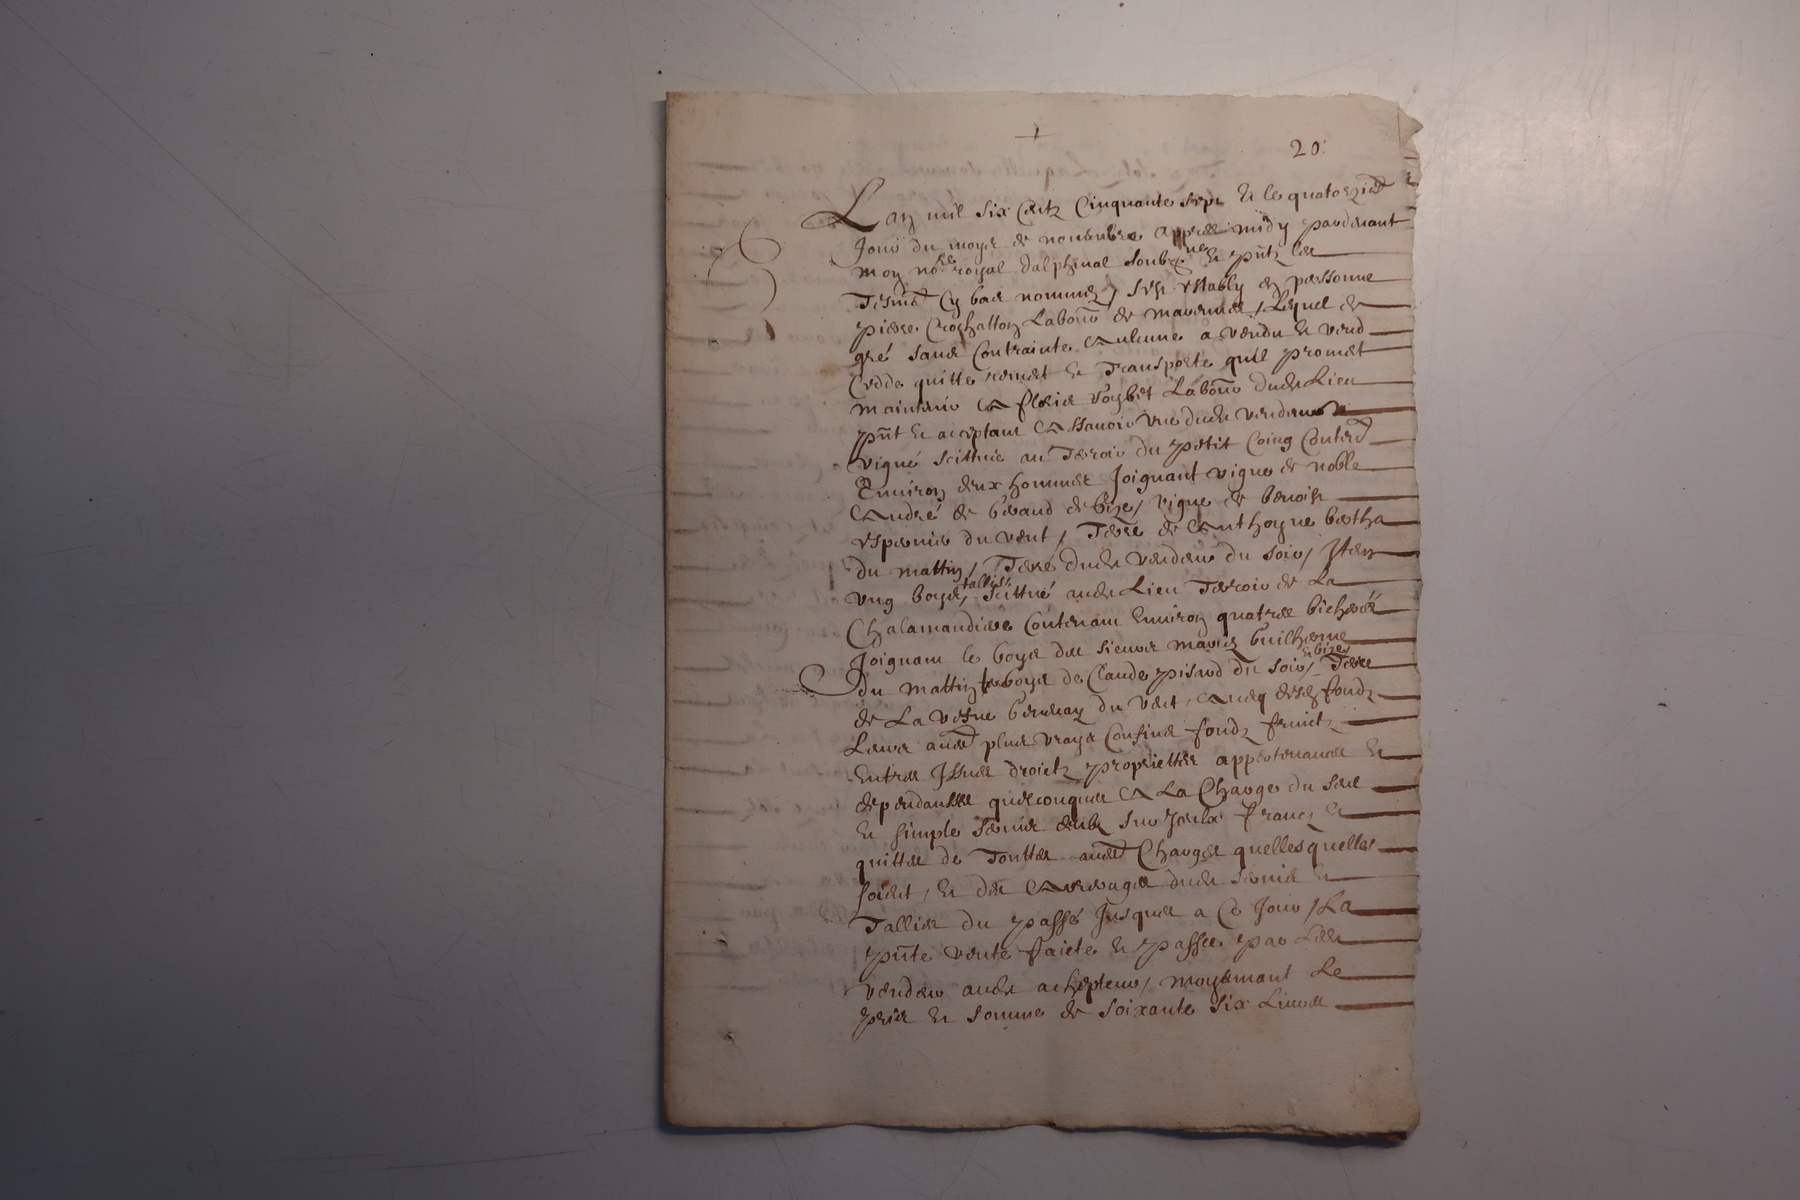 20.
Lan mil six centz cinquante sept & le quatorzie
Jour du moys de novembre appres midy pardevant
moy nore royal dalphinal soubzne & pnt les
Tesmes cy bas nommes, sest estably en personne
pierre Labour de Lequel de
gre sans contrainte aulcune a vendu & vend
cedde quitte remet & transporte quil promet
maintenir a Labour dudt Lieu
pnt & acceptant a ssavoir une dudt vendeur
vigne scittuee au Terroir du petit Coing conten
Environ deux hommes Joignant vigne de noble
André de vigne de benoist
du vent, Terre de Anthoyne bertha
du mattin, Terre dudt vendeur du soir, Item
ung boys tallis scittué audt Lieu Terroir de La
Chalamandiere contenant Environ quatre bicherées
Joignant le boys des sieurs Guilherme
du mattin boys de Claude pisard du soir & bize, Terre
de La vesve du vent, avecq fondz
Leurs aues plus vrays confins fondz fruictz
Entrees Issues droictz proprietes appertenances &
dependansses quelconques A La Charge du sens
& simple servis deubz sur Iceulx francz &
quittes de touttes aues Charges quellesquelles
soient, & des Arreyrages dudt servis &
Tallies du passé Jusques a ce Jour, La
pnte vente faicte & passee par Ledt
vendeur audt achepteur, moyenant Le
pris & somme de soixante six Livres